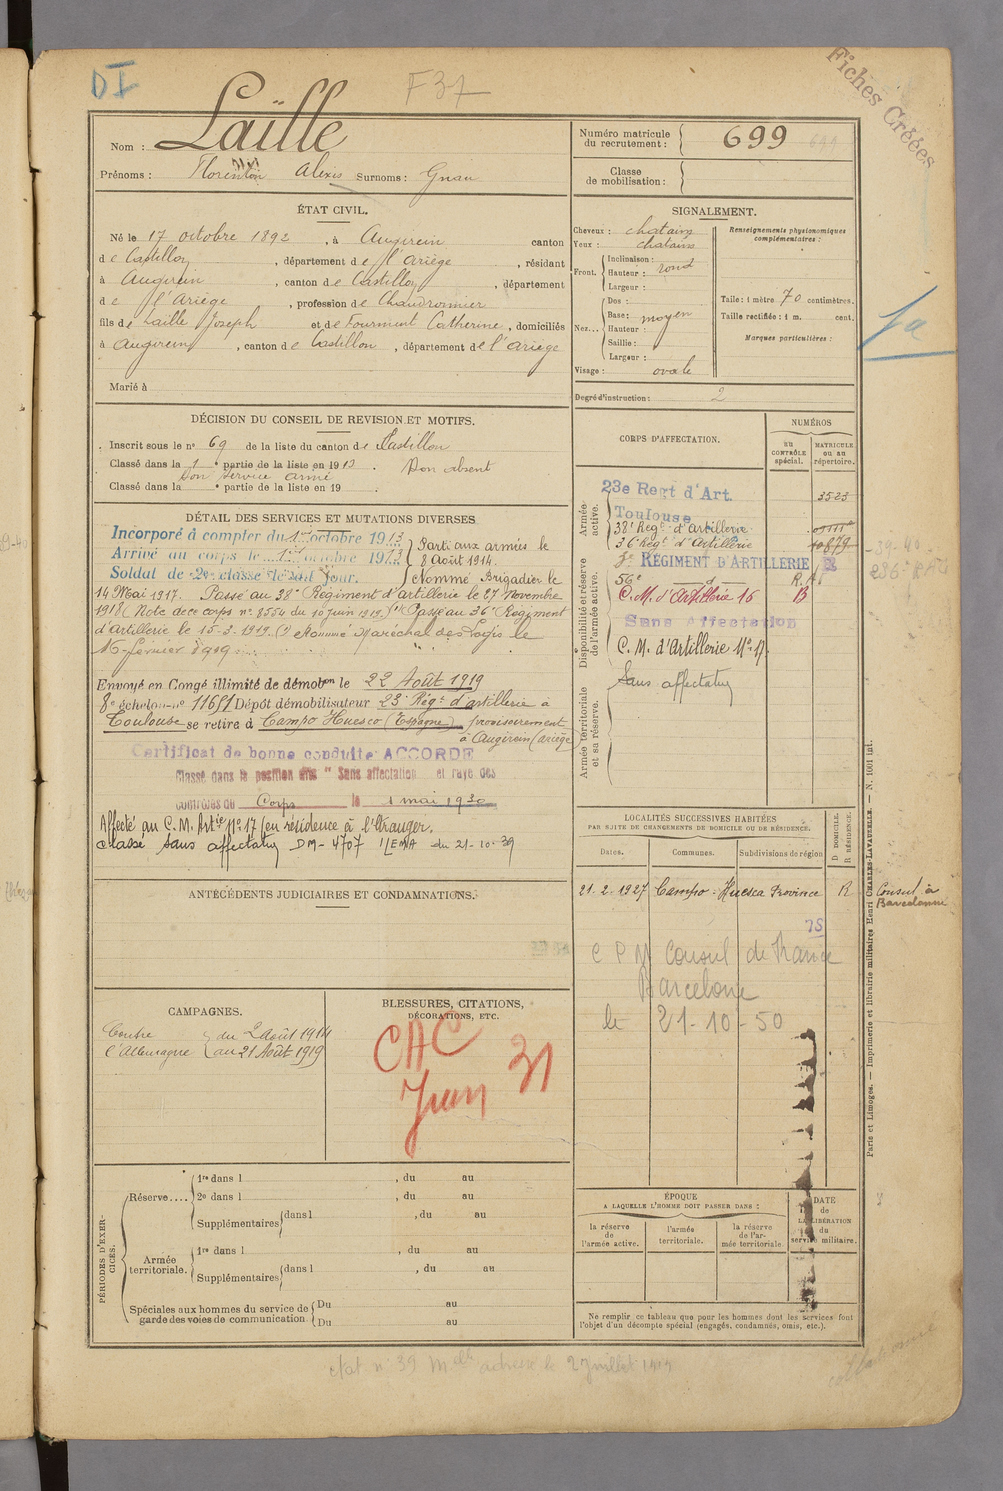 DI
F37
Fiches Créées
Nom : Laille
Prénoms : Florentin Alexis Surnoms : Gnau
Numéro matricule du recrutement : 699
Classe de mobilisation :
ÉTAT CIVIL.
Né le 17 octobre 1892, à Augirein canton
de Castillon, département de l'Ariège, résidant
à Augirein, canton de Castillon, département
de l'Ariège, profession de Chaudronnier
fils de Laille Joseph et de Fourment Catherine, domiciliés
à Augirein, canton de Castillon, département de l'Ariège
Marié à
SIGNALEMENT.
Cheveux : chatains
Yeux : chatains
Front. Inclinaison :
Hauteur : rond
Largeur :
Nez... Dos :
Base : moyen
Hauteur :
Saillie :
Largeur :
Visage : ovale
Renseignements physionomiques complémentaires :
Taille : 1 mètre 70 centimètres.
Taille rectifiée : 1 m. cent.
Marques particulières :
Degré d'instruction : 2
DÉCISION DU CONSEIL DE REVISION ET MOTIFS.
Inscrit sous le nº 69 de la liste du canton de Castillon
Classé dans la 1e partie de la liste en 1913. Bon absent
Bon service armé
Classé dans la e partie de la liste en 19 .
DÉTAIL DES SERVICES ET MUTATIONS DIVERSES
Incorporé à compter du 1er octobre 1913
Arrivé au corps le 1er octobre 1913
Soldat de 2e classe le dit jour.
Parti aux armées le
8 Août 1914.
Nommé Brigadier le
14 Mai 1917. Passé au 38e Régiment d'artillerie le 27 novembre
1918 (Note de ce corps nº 8554 du 10 juin 1919.) Passé au 36e Régiment
d'artillerie le 15-3-1919. Nommé Maréchal des Logis le
16 février 1919.
Envoyé en Congé illimité de démobon le 22 Août 1919
8e échelon nº 11651 Dépôt démobilisateur 23e Régt d'artillerie à
Toulouse se retire à Campo Huesco (Espagne) provisoirement
à Augirein (ariège)
Certificat de bonne conduite ACCORDÉ
Classé dans la position dite "Sans affectation et rayé des
contrôles du Corps le 1 mai 1930
Affecté au C.M. Artie Nº 17 (en résidence à l'étranger.
Classé Sans affectation DM-4707 1/EMA du 21-10-39
CORPS D'AFFECTATION.
NUMÉROS
au CONTRÔLE spécial.
MATRICULE ou au répertoire.
Armée active.
23e Regt d'Art.
Toulouse
3523
38e Regt d'Artillerie
36e Regt d'Artillerie
879
Disponibilité et réserve de l'armée active.
RÉGIMENT D'ARTILLERIE
56e d R.A.
C.M. d'Artillerie 16 B
Sans Affectation
C.M. d'Artillerie Nº 17.
Sans affectation
Armée territoriale et sa réserve.
LOCALITÉS SUCCESSIVES HABITÉES
PAR SUITE DE CHANGEMENTS DE DOMICILE OU DE RÉSIDENCE.
Dates. Communes. Subdivisions de région
D DOMICILE. R RÉSIDENCE.
21-2-1927 Campo : Huesca Province R Consul à Barcelonne
CPM Consul de France
Barcelone
le 21-10-50
ANTÉCÉDENTS JUDICIAIRES ET CONDAMNATIONS.
CAMPAGNES.
Contre l'Allemagne
du 2 Août 1914
au 21 Août 1919
BLESSURES, CITATIONS,
DÉCORATIONS, ETC.
CAC
Juin 31
PÉRIODES D'EXERCICES.
Réserve.... 1re dans l , du au
2e dans l , du au
Supplémentaires dans l , du au
Armée territoriale. 1re dans l , du au
Supplémentaires dans l , du au
Spéciales aux hommes du service de garde des voies de communication. Du au
Du au
ÉPOQUE
A LAQUELLE L'HOMME DOIT PASSER DANS :
la réserve de l'armée active.
l'armée territoriale.
la réserve de l'armée territoriale.
DATE de LA LIBÉRATION du service militaire.
Ne remplir ce tableau que pour les hommes dont les services font
l'objet d'un décompte spécial (engagés, condamnés, omis, etc.).
Paris et Limoges. — Imprimerie et librairie militaires Henri CHARLES-LAVAUZELLE. — N. 1001 int.